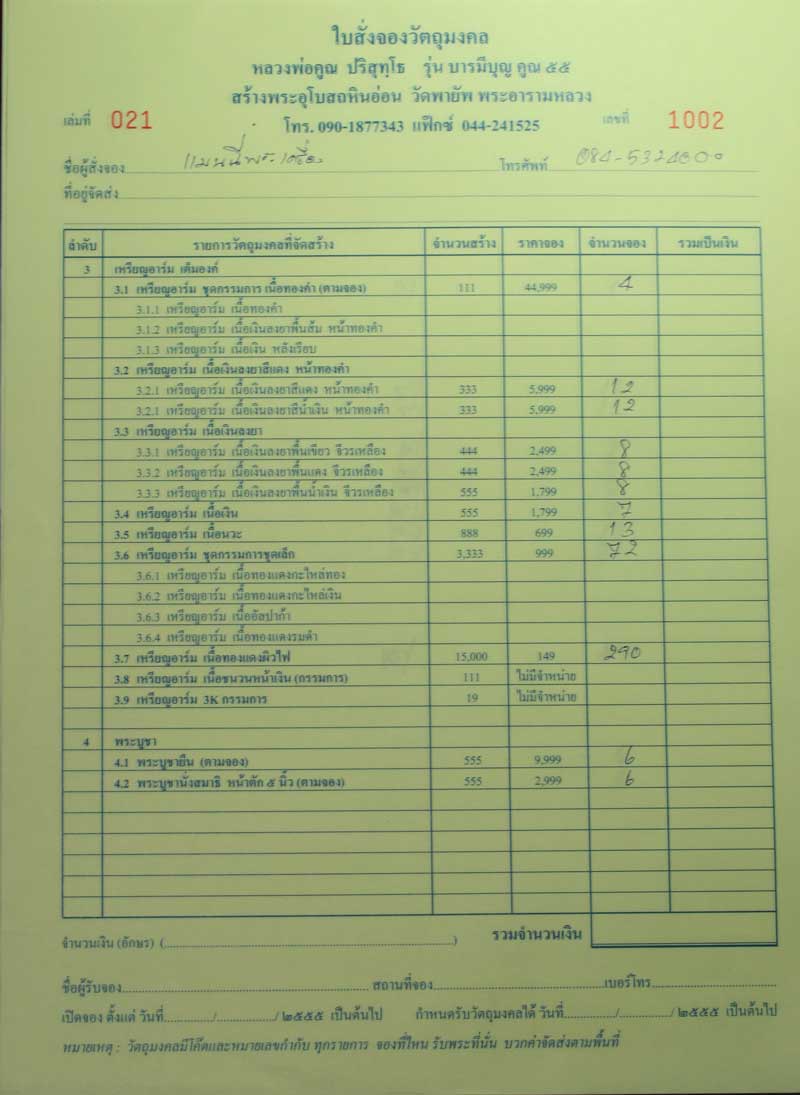 ใบสั่งจองวัตถุมงคล
หลวงพ่อคูณ ปริสุทฺโธ รุ่น บารมีบุญ คูณ ๕๕
สร้างพระอุโบสถหินอ่อน วัดพายัพ พระอารามหลวง
เล่มที่ 021 โทร. 090-1877343 แฟ็กซ์ 044-241525 เลขที่ 1002
ชื่อผู้สั่งจอง แมนนี่พระเครื่อง โทรศัพท์ 084-5324000
ที่อยู่จัดส่ง
ลำดับ รายการวัตถุมงคลที่จัดสร้าง จำนวนสร้าง ราคาจอง จำนวนจอง รวมเป็นเงิน
3 เหรียญอาร์ม เต็มองค์
3.1 เหรียญอาร์ม ชุดกรรมการ เนื้อทองคำ (ตามจอง) 111 44,999 4
3.1.1 เหรียญอาร์ม เนื้อทองคำ
3.1.2 เหรียญอาร์ม เนื้อเงินลงยาพื้นส้ม หน้าทองคำ
3.1.3 เหรียญอาร์ม เนื้อเงิน หลังเรียบ
3.2 เหรียญอาร์ม เนื้อเงินลงยาสีแดง หน้าทองคำ
3.2.1 เหรียญอาร์ม เนื้อเงินลงยาสีแดง หน้าทองคำ 333 5,999 12
3.2.1 เหรียญอาร์ม เนื้อเงินลงยาสีน้ำเงิน หน้าทองคำ 333 5,999 12
3.3 เหรียญอาร์ม เนื้อเงินลงยา
3.3.1 เหรียญอาร์ม เนื้อเงินลงยาพื้นเขียว จีวรเหลือง 444 2,499 8
3.3.2 เหรียญอาร์ม เนื้อเงินลงยาพื้นแดง จีวรเหลือง 444 2,499 8
3.3.3 เหรียญอาร์ม เนื้อเงินลงยาพื้นน้ำเงิน จีวรเหลือง 555 1,799 8
3.4 เหรียญอาร์ม เนื้อเงิน 555 1,799 7
3.5 เหรียญอาร์ม เนื้อนวะ 888 699 13
3.6 เหรียญอาร์ม ชุดกรรมการชุดเล็ก 3,333 999 72
3.6.1 เหรียญอาร์ม เนื้อทองแดงกะไหล่ทอง
3.6.2 เหรียญอาร์ม เนื้อทองแดงกะไหล่เงิน
3.6.3 เหรียญอาร์ม เนื้ออัลปาก้า
3.6.4 เหรียญอาร์ม เนื้อทองแดงรมดำ
3.7 เหรียญอาร์ม เนื้อทองแดงผิวไฟ 15,000 149 290
3.8 เหรียญอาร์ม เนื้อชนวนหน้าเงิน (กรรมการ) 111 ไม่มีจำหน่าย
3.9 เหรียญอาร์ม 3K กรรมการ 19 ไม่มีจำหน่าย
4 พระบูชา
4.1 พระบูชายืน (ตามจอง) 555 9,999 6
4.2 พระบูชานั่งสมาธิ หน้าตัก ๕ นิ้ว (ตามจอง) 555 2,999 6
จำนวนเงิน (อักษร) (....................) รวมจำนวนเงิน
ชื่อผู้รับจอง.................... สถานที่จอง.................... เบอร์โทร....................
เปิดจอง ตั้งแต่ วันที่............/............/๒๕๕๕ เป็นต้นไป กำหนดรับวัตถุมงคลได้ วันที่............/............/๒๕๕๕ เป็นต้นไป
หมายเหตุ : วัตถุมงคลมีโค๊ตและหมายเลขกำกับ ทุกรายการ จองที่ไหน รับพระที่นั่น บวกค่าจัดส่งตามพื้นที่